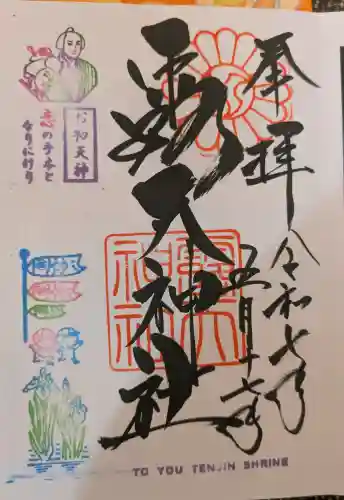 奉拝
令和七年
五月十七日
露天神社
露天神社
お初天神
恋の手本と
なりにけり
TO YOU TENJIN SHRINE